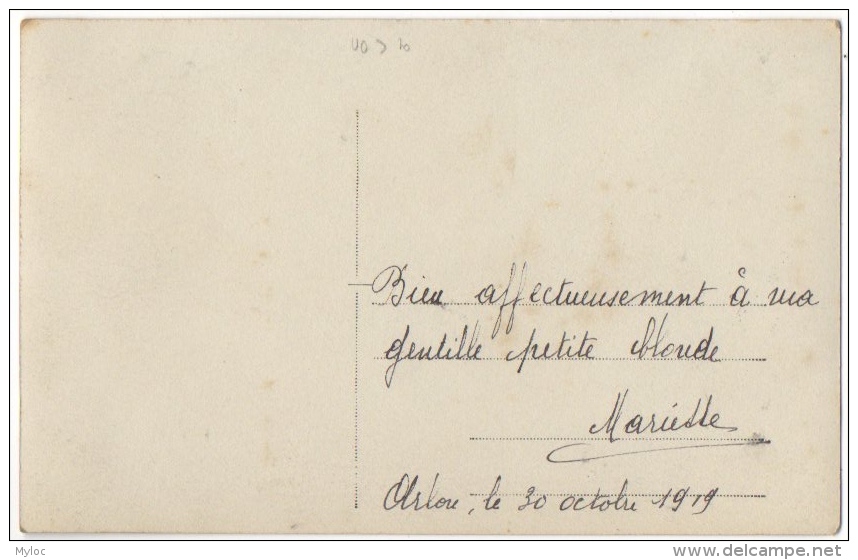 Bien affectueusement à ma
gentille petite blonde
Mariette
Arlon, le 30 octobre 1919
Myloc
www.delcampe.net